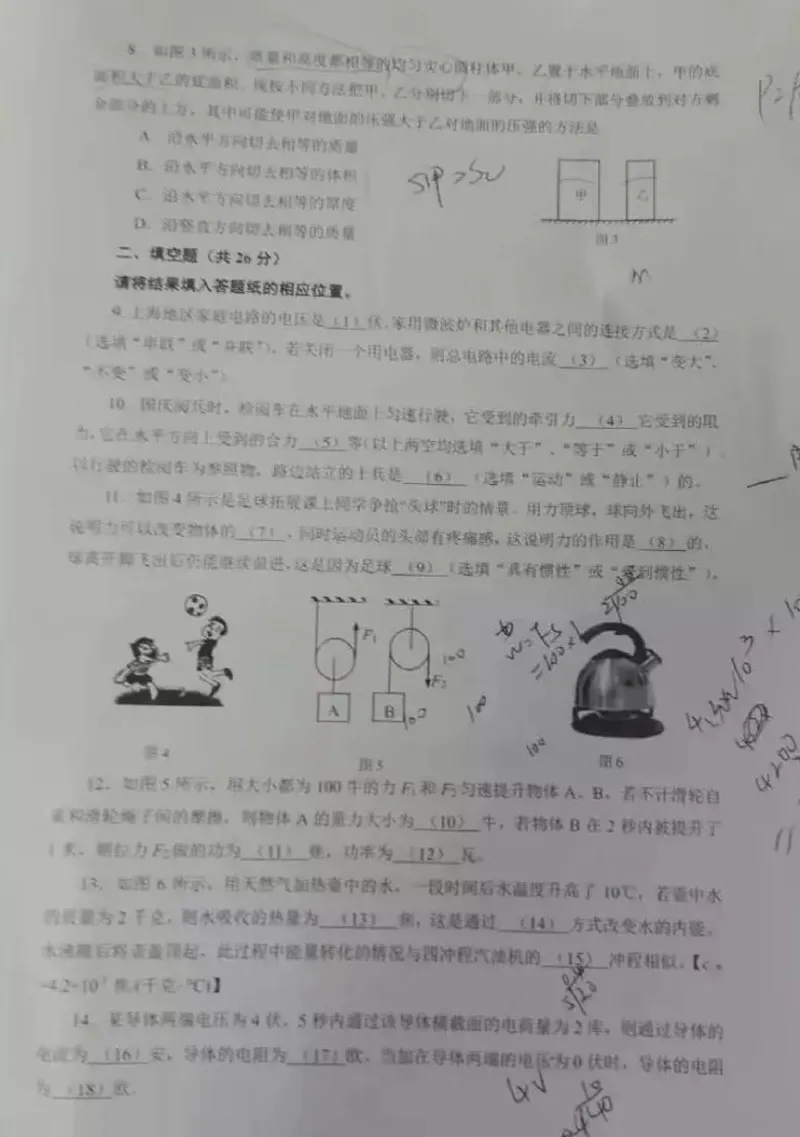 8. 如图3所示，质量和高度都相等的均匀实心圆柱体甲、乙置于水平地面上，甲的底
面积大于乙的底面积。现按不同方法把甲、乙分别切下一部分，并将切下部分叠放到对方剩
余部分的上方，其中可能使甲对地面的压强大于乙对地面的压强的方法是
A 沿水平方向切去相等的质量
B. 沿水平方向切去相等的体积
C. 沿水平方向切去相等的厚度
D. 沿竖直方向切去相等的质量
甲 乙
图3
二、填空题（共26分）
请将结果填入答题纸的相应位置。
9. 上海地区家庭电路的电压是（1）伏，家用微波炉和其他电器之间的连接方式是（2）
（选填“串联”或“并联”），若关闭一个用电器，则总电路中的电流（3）（选填“变大”、
“不变”或“变小”）
10. 国庆阅兵时，检阅车在水平地面上匀速行驶，它受到的牵引力（4）它受到的阻
力，它在水平方向上受到的合力（5）等（以上两空均选填“大于”、“等于”或“小于”）。
以行驶的检阅车为参照物，路边站立的士兵是（6）（选填“运动”或“静止”）的。
11. 如图4所示是足球拓展课上同学争抢“头球”时的情景。用力顶球，球向外飞出，这
说明力可以改变物体的（7），同时运动员的头部有疼痛感，这说明力的作用是（8）的，
球离开脚飞出后仍能继续前进，这是因为足球（9）（选填“具有惯性”或“受到惯性”）。
F1
F2
A B
100
100
100
100
W=FS
=100×1
图4
图5
图6
12. 如图5所示，用大小都为100牛的力F1和F2匀速提升物体A、B。若不计滑轮自
重和滑轮绳子间的摩擦，则物体A的重力大小为（10）牛，若物体B在2秒内被提升了
1米，则拉力F2做的功为（11）焦，功率为（12）瓦。
13. 如图6所示，用天然气加热壶中的水，一段时间后水温度升高了10℃，若壶中水
的质量为2千克，则水吸收的热量为（13）焦，这是通过（14）方式改变水的内能。
水沸腾后将壶盖顶起，此过程中能量转化的情况与四冲程汽油机的（15）冲程相似。【c水
=4.2×10³焦/(千克·℃)】
14. 某导体两端电压为4伏，5秒内通过该导体横截面的电荷量为2库，则通过导体的
电流为（16）安，导体的电阻为（17）欧，当加在导体两端的电压为0伏时，导体的电阻
为（18）欧